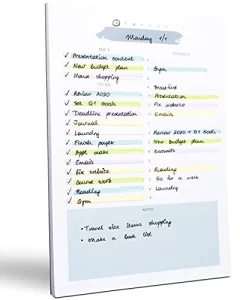 Monday 1/1
TOP 3
Presentation content
New budget plan
House shopping
TO DO
Review 2020
Set Q1 Goals
Deadline presentation
Journal
Laundry
Finish paper
Emails
Fix website
Course work
Reading
Gym
Gym
Breakfast
Presentation
Fix website
Emails
Review 2020 + Q1 Goals
New Budget plan
Errands
Reading
Go for a walk
Laundry
NOTES
• Travel size items shopping
• Make a book list